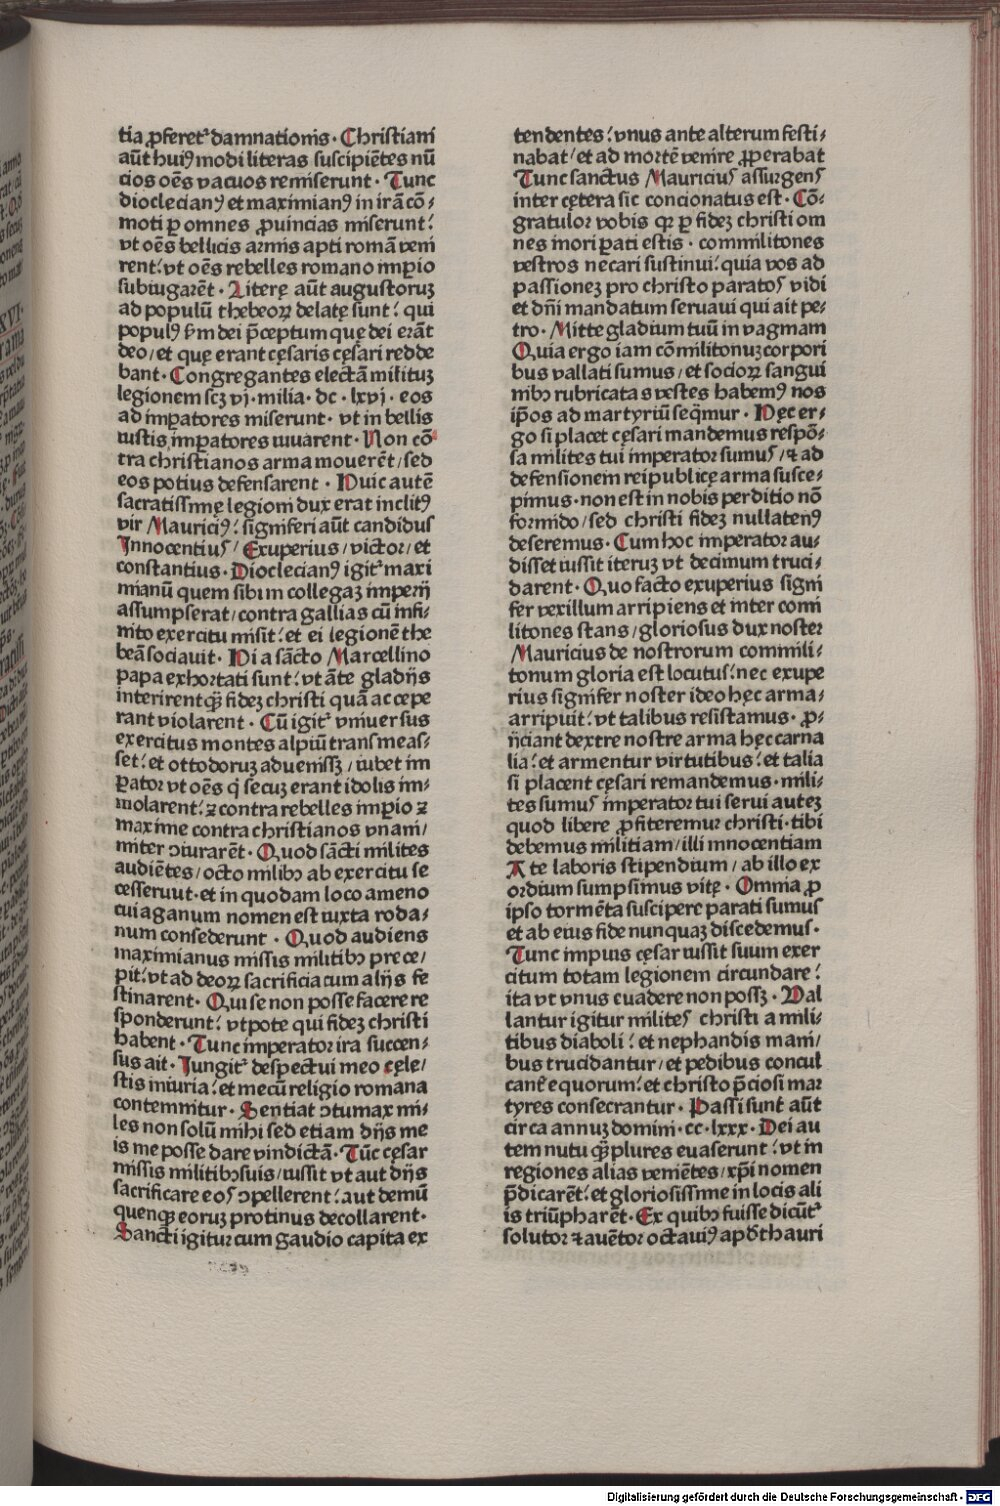 tia ꝓferetᷣ damnationis · Christiani
aūt huiꝰmodi literas suscipiētes nū
cios oēs vacuos remiserunt · Tunc
dioclecianꝰ et maximianꝰ in irā cō⸗
moti ꝑ omnes ꝓuincias miserunt:
vt oēs bellicis armis apti romā veni
rent: vt oēs rebelles romano imꝑio
subiugarēt · Literę aūt augustoruꝫ
ad populū thebeoꝝ delatę sunt: qui
populꝰ ẜm dei p̄ceptum quę dei erāt
deo / et quę erant cęsaris cęsari redde
bant · Congregantes electā milituꝫ
legionem scꝫ vj · milia · dc · lxvj · eos
ad imꝑatores miserunt · vt in bellis
iustis imꝑatores iuuarent · Non cō⸗
tra christianos arma mouerēt / sed
eos potius defensarent · Huic autē
sacratissimę legioni dux erat inclitꝰ
vir Mauriciꝰ: signiferi aūt candidus
Innocentius / Exuperius / victor / et
constantius · Dioclecianꝰ igitᷣ maxi
mianū quem sibi in collegaꝫ imperij
assumpserat / contra gallias cū infi⸗
nito exercitu misit: et ei legionē the
beā sociauit · Hi a sācto Marcellino
papa exhortati sunt: vt āte gladijs
interirent qꝫ̄ fideꝫ christi quā accepe
rant violarent · Cū igitᷣ vniuersus
exercitus montes alpiū transmeas⸗
set: et ottodoruꝫ aduenissꝫ / iubet im
ꝑator vt oēs q̇ secuꝫ erant idolis im⸗
molarent: ⁊ contra rebelles imꝑio ⁊
maxime contra christianos vnani /
miter ↄiurarēt · Quod sācti milites
audiētes / octo milibꝫ ab exercitu se
cesseruut · et in quodam loco ameno
cui aganum nomen est iuxta roda⸗
num consederunt · Quod audiens
maximianus missis militibꝫ prece /
pit: vt ad deoꝝ sacrificia cum alijs fe
stinarent · Qui se non posse facere re
sponderunt: vtpote qui fideꝫ christi
habent · Tunc imperator ira succen⸗
sus ait · Jungitᷣ despectui meo cęle /
stis iniuria: et mecū religio romana
contemnitur · Sentiat ↄtumax mi⸗
les non solū mihi sed etiam dijs me
is me posse dare vindictā · Tūc cęsar
missis militibꝫ suis / iussit vt aut dijs
sacrificare eos ↄpellerent: aut demū
quenqꝫ eoruꝫ protinus decollarent ·
Sancti igitur cum gaudio capita ex
tendentes: vnus ante alterum festi⸗
nabat / et ad mortē venire ꝓꝑerabat
Tunc sanctus Mauricius assurgens
inter cętera sic concionatus est · Cō⸗
gratulor vobis qꝛ ꝑ fideꝫ christi om
nes mori ꝑati estis · commilitones
vestros necari sustinui: quia vos ad
passioneꝫ pro christo paratos vidi
et dn̄i mandatum seruaui qui ait pe⸗
tro · Mitte gladium tuū in vaginam
Quia ergo iam cōmilitonuꝫ corpori
bus vallati sumus / et socioꝝ sangui
nibꝫ rubricatas vestes habemꝰ nos
ip̄os ad martyriū seq̇mur · Nęc er⸗
go si placet cęsari mandemus respō⸗
sa milites tui imperator sumus / ⁊ ad
defensionem reipublicę arma susce⸗
pimus · non est in nobis perditio nō
formido / sed christi fideꝫ nullatenꝰ
deseremus · Cum hoc imperator au⸗
disset iussit iteruꝫ vt decimum truci⸗
darent · Quo facto exuperius signi
fer vexillum arripiens et inter com̄i
litones stans / gloriosus dux noster
Mauricius de nostrorum commili⸗
tonum gloria est locutus: nec exupe
rius signifer noster ideo hęc arma⸗
arripuit: vt talibus resistamus · ꝓ⸗
ijciant dextre nostre arma hęc carna
lia: et armentur virtutibus: et talia
si placent cęsari remandemus · mili⸗
tes sumus imperator tui serui auteꝫ
quod libere ꝓfiteremur christi · tibi
debemus militiam / illi innocentiam
A te laboris stipendium / ab illo ex
ordium sumpsimus vitę · Omnia ꝓ
ipso tormēta suscipere parati sumus
et ab eius fide nunquaꝫ discedemus ·
Tunc impius cęsar iussit suum exer
citum totam legionem circundare:
ita vt vnus euadere non possꝫ · Val
lantur igitur milites christi a mili⸗
tibus diaboli: et nephandis mani /
bus trucidantur / et pedibus concul
canť equorum: et christo p̄ciosi mar
tyres consecrantur · Passi sunt aūt
circa annuꝫ domini · cc · lxxx · Dei au
tem nutu qꝫ̄plures euaserunt: vt in
regiones alias veniētes / xp̄i nomen
p̄dicarēt: et gloriosissime in locis ali
is triūpharēt · Ex quibꝫ fuisse dicūtᷣ
solutor ⁊ auētor octauiꝰ apᵭ thauri
Digitalisierung gefördert durch die Deutsche Forschungsgemeinschaft - DFG